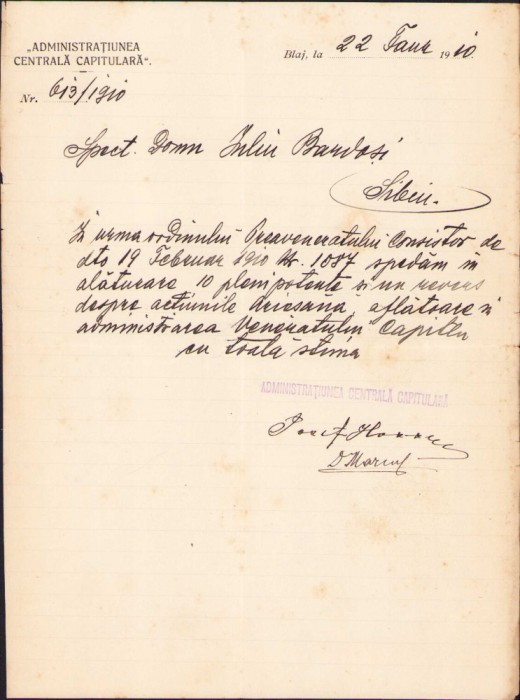 „ADMINISTRAȚIUNEA
CENTRALĂ CAPITULARĂ“.
Blaj, la 22 1910.
Nr. 613/1910
Spect. Domn Iuliu Bardoși
Sibiu.
În urma ordinului Preaveneratului Consistor de
dto 19 Februar 1910 Nr. 1087 spedăm în
alăturare 10 plenipotențe și un revers
despre acțiunile „Ariesana“, aflătoare în
administrarea Veneratului Capitlu
cu toată stima
ADMINISTRAȚIUNEA CENTRALĂ CAPITULARĂ